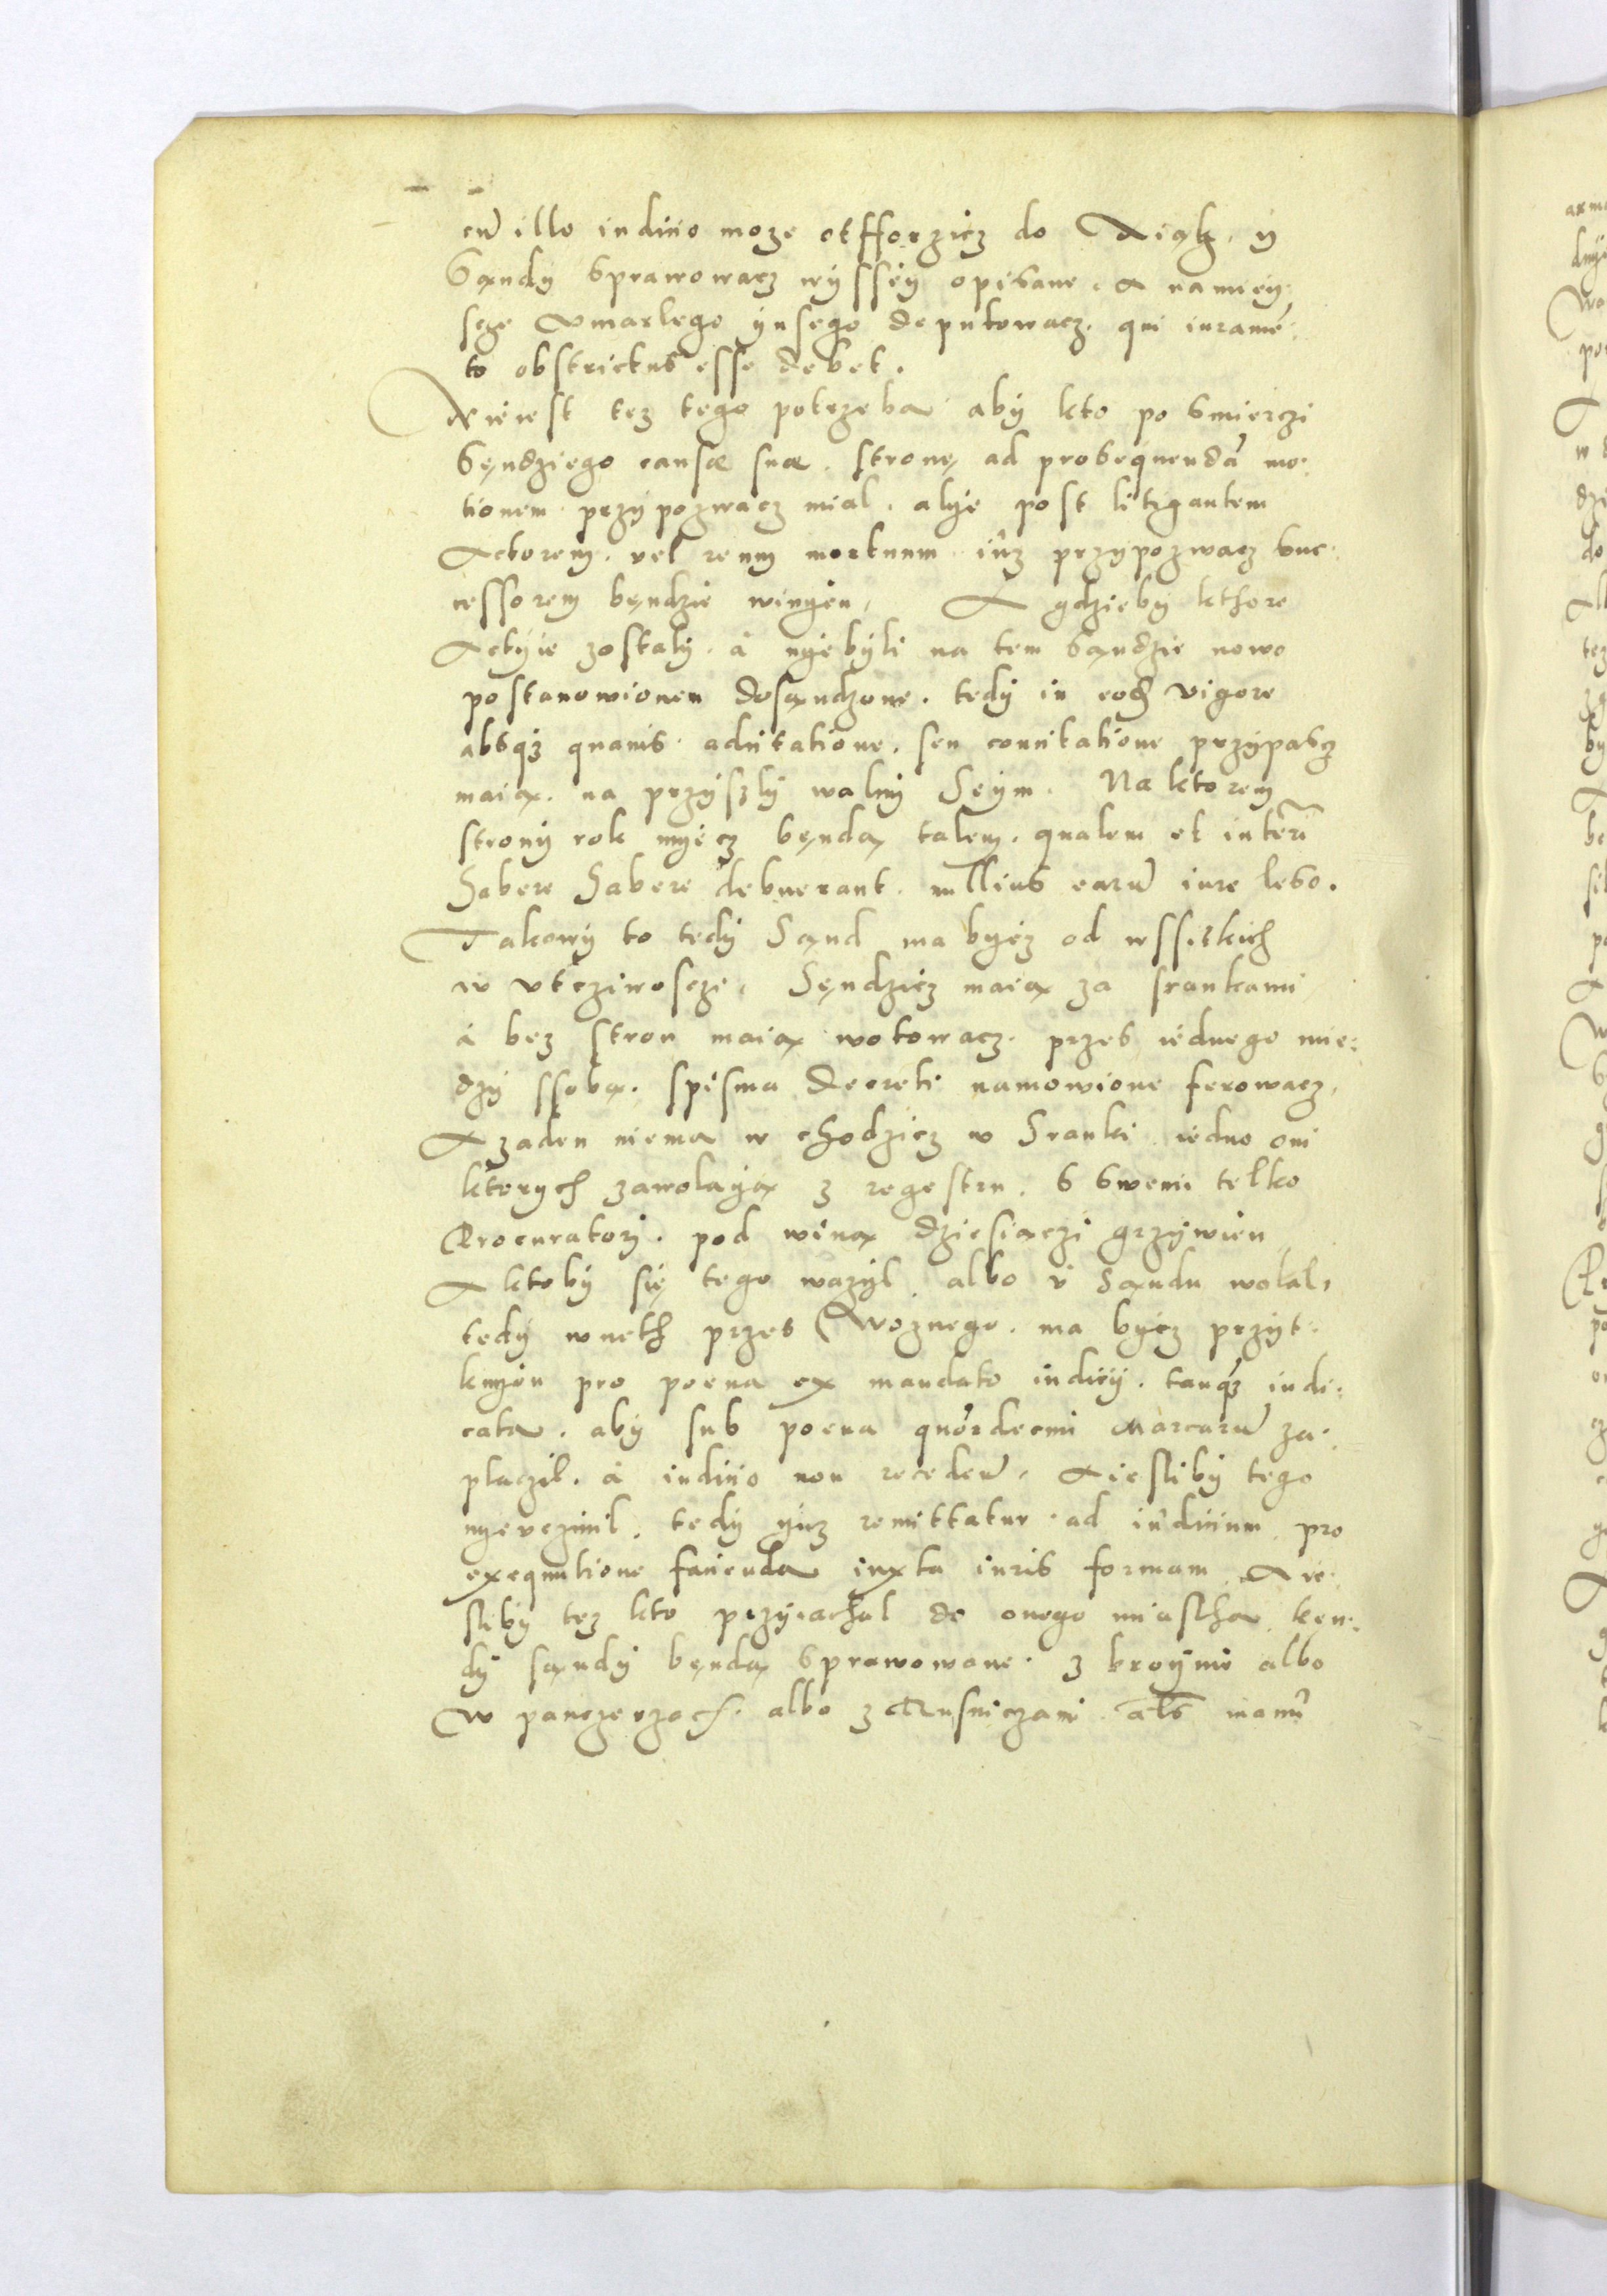 cū illo indiiio moze otfforzicz do Xiąk, y
Sąndy sprawowacz wyssey opisane. A na miey:
scze vmarlego ynsego deputowacz. qui iuramē:
to obstrictus esse debet.
Nieiest tez tego potrzeba aby kto po smierczi
Sęndziego causæ suæ. stronę ad prosequendā mo:
tionem przypozwacz mial. alye post litigantem
Actorem. vel reum mortuum iuz przypozwacz suc:
cessorem bęndzie winyen. A gdzieby kthore
Actyie zostaly. á nyebyli na tem sąndzie nowo
postanowionem dosąndzone. tedy in eodē vigore
absq3 quauis aduitatione. seu conuitatione przypascz
maią. na przyszly walny Seym. Na ktorem
strony rok myecz będą talem. qualem et interī
habere habere debuerant. nullius earū iure leso.
Takowy to tedy Sąnd ma bycz od wssitkich
w vtcziwoscze. Sęndzicz maią za srankami
á bez stron maią wotowacz. przes iednego mie:
dzy ssobą. spisma Decreti namowione ferowacz.
A zaden niema w chodzicz w Sranki iedno oni
ktorych zawolayą z regestru. s swemi telko
Procuratorj. pod winą dziesiączi grzywien
A ktoby się tego wazyl albo v Sąndu wolal,
tedy wneth przes Woznego. ma bycz przyt:
knyon pro poena ex mandato iudicij. tanq3 iudi:
cata. aby sub poena quordecmi Marcarū za:
placzil. á iudiiio non recedeū. A iesliby tego
nye vczinil. tedy yuz remittatur ad iudicium pro
exequutione facienda iuxta iuris formam. A ie:
sliby tez kto przyiachal do onego miastha kęn:
dy sąndy będą sprawowane. z broymi albo
w panczerzach. albo z Rusniczami. als manū